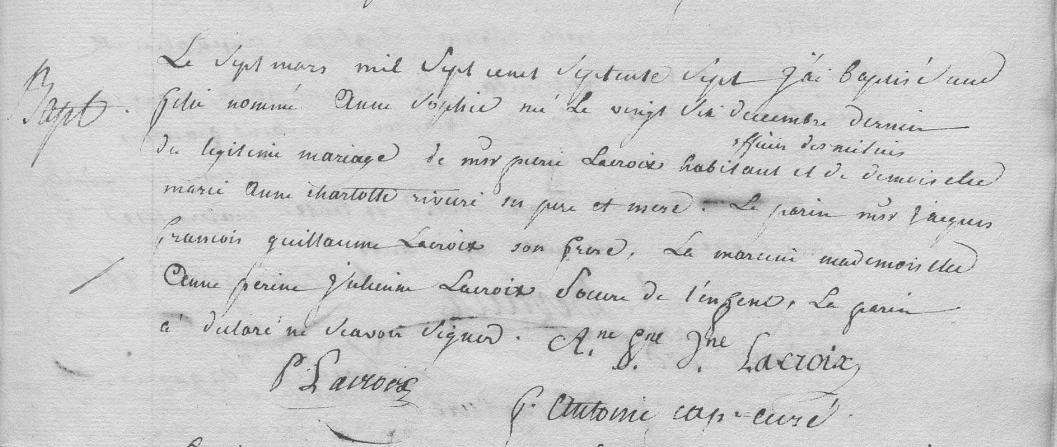 Bapt.
Le Sept mars mil Sept cent Septente Sept J'ai baptisé une
fille nommé Anne Sophie né Le vingt Six decembre dernier
officier des milices
du legitime mariage de msr pierre Lacroix habitant et de demoiselle
marie Anne charlotte riviere ses pere et mere. Le parin msr jacques
francois guillaume Lacroix son frere, La mareine mademoiselle
Anne perine Julienne Lacroix Soeure de l'enfent, Le parin
à declaré ne Scavoir Signer. Ane Pne Jne Lacroix
P Lacroix
f. Antoine cap. curé.